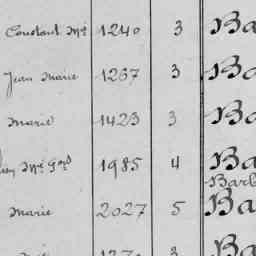 Constant Mie 1240 3 Ba
Jean Marie 1237 3 Ba
Marie 1423 3 Ba
Mie 1985 4 Ba
Barb
Marie 2027 5 Ba
3 Ba